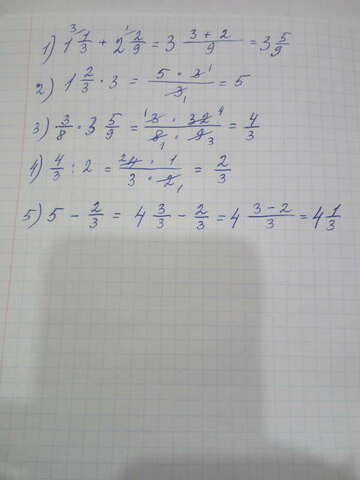 1) 1 3\ 1/3 + 2 1\ 2/9 = 3 (3 + 2)/9 = 3 5/9
2) 1 2/3 · 3 = (5 · 3 1)/(3 1) = 5
3) 3/8 · 3 5/9 = (1 3 · 32 4)/(8 1 · 9 3) = 4/3
4) 4/3 : 2 = (2 4 · 1)/(3 · 2 1) = 2/3
5) 5 - 2/3 = 4 3/3 - 2/3 = 4 (3 - 2)/3 = 4 1/3